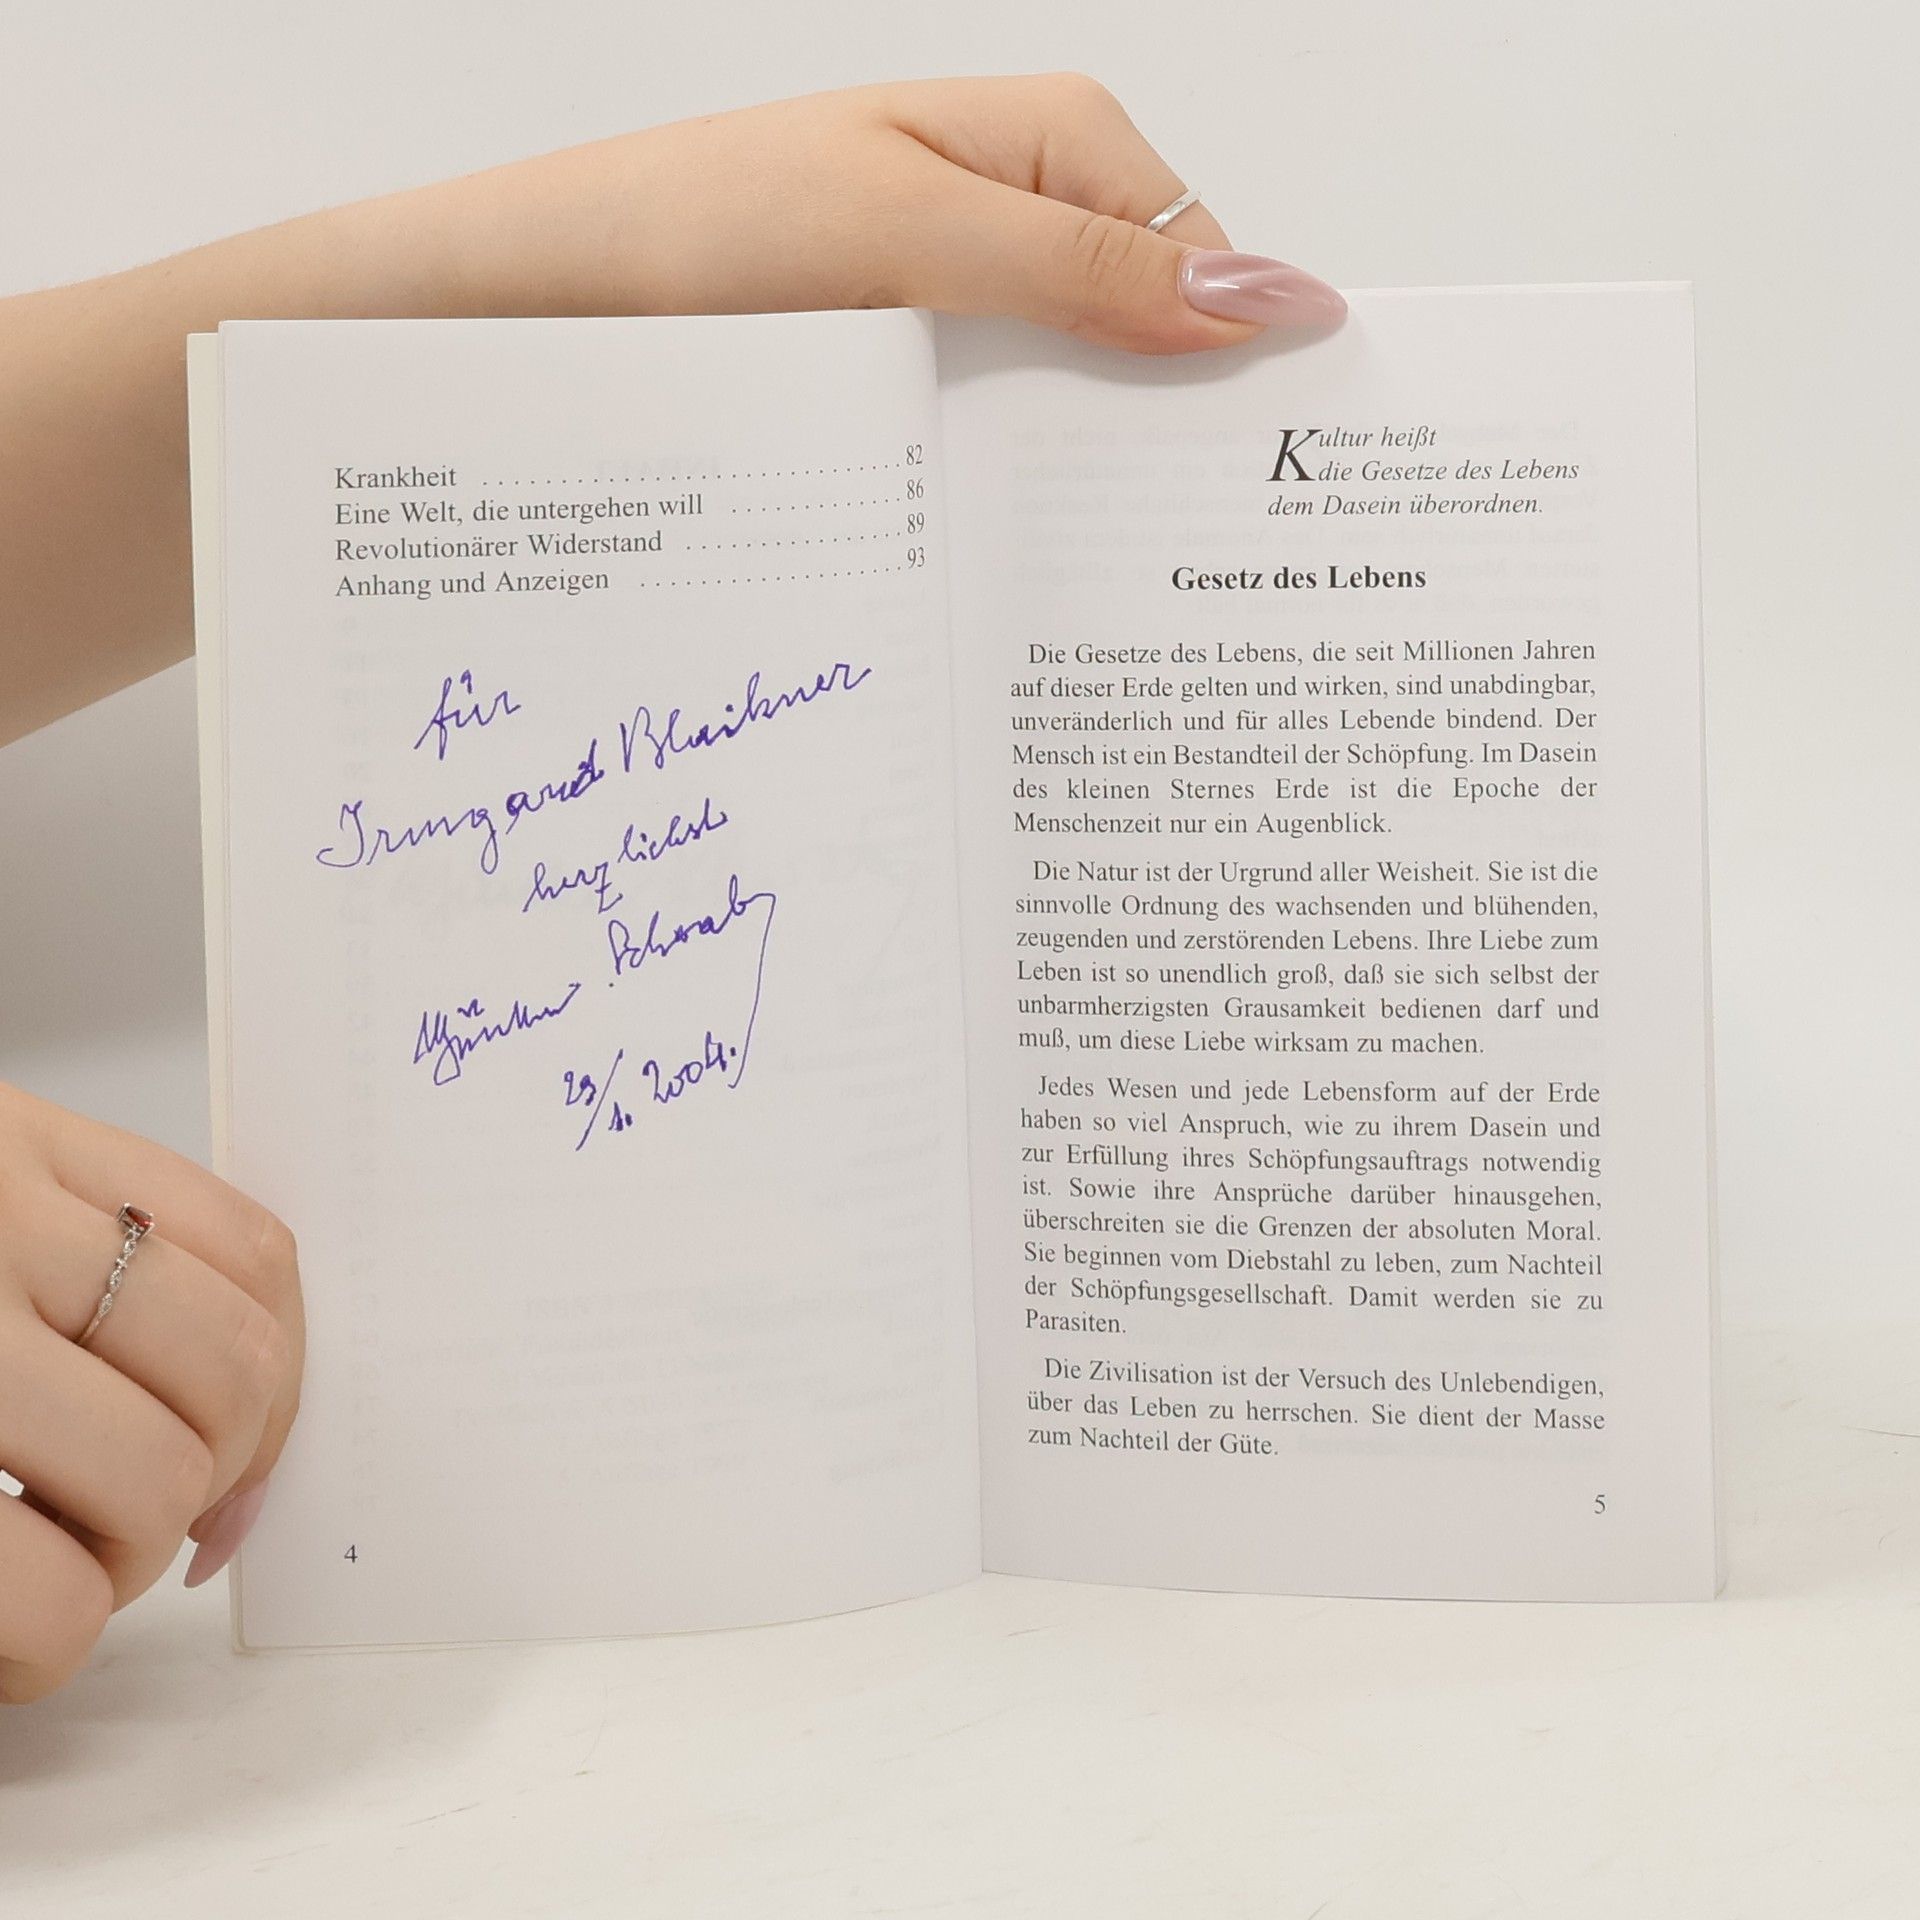 Krankheit ............................ 82
Eine Welt, die untergehen will ............ 86
Revolutionärer Widerstand ............... 89
Anhang und Anzeigen .................. 93
für
Irmgard Blaikner
herzlichst
Günther Schwab
29/1. 2004.
4
Kultur heißt
die Gesetze des Lebens
dem Dasein überordnen.
Gesetz des Lebens
Die Gesetze des Lebens, die seit Millionen Jahren
auf dieser Erde gelten und wirken, sind unabdingbar,
unveränderlich und für alles Lebende bindend. Der
Mensch ist ein Bestandteil der Schöpfung. Im Dasein
des kleinen Sternes Erde ist die Epoche der
Menschenzeit nur ein Augenblick.
Die Natur ist der Urgrund aller Weisheit. Sie ist die
sinnvolle Ordnung des wachsenden und blühenden,
zeugenden und zerstörenden Lebens. Ihre Liebe zum
Leben ist so unendlich groß, daß sie sich selbst der
unbarmherzigsten Grausamkeit bedienen darf und
muß, um diese Liebe wirksam zu machen.
Jedes Wesen und jede Lebensform auf der Erde
haben so viel Anspruch, wie zu ihrem Dasein und
zur Erfüllung ihres Schöpfungsauftrags notwendig
ist. Sowie ihre Ansprüche darüber hinausgehen,
überschreiten sie die Grenzen der absoluten Moral.
Sie beginnen vom Diebstahl zu leben, zum Nachteil
der Schöpfungsgesellschaft. Damit werden sie zu
Parasiten.
Die Zivilisation ist der Versuch des Unlebendigen,
über das Leben zu herrschen. Sie dient der Masse
zum Nachteil der Güte.
5